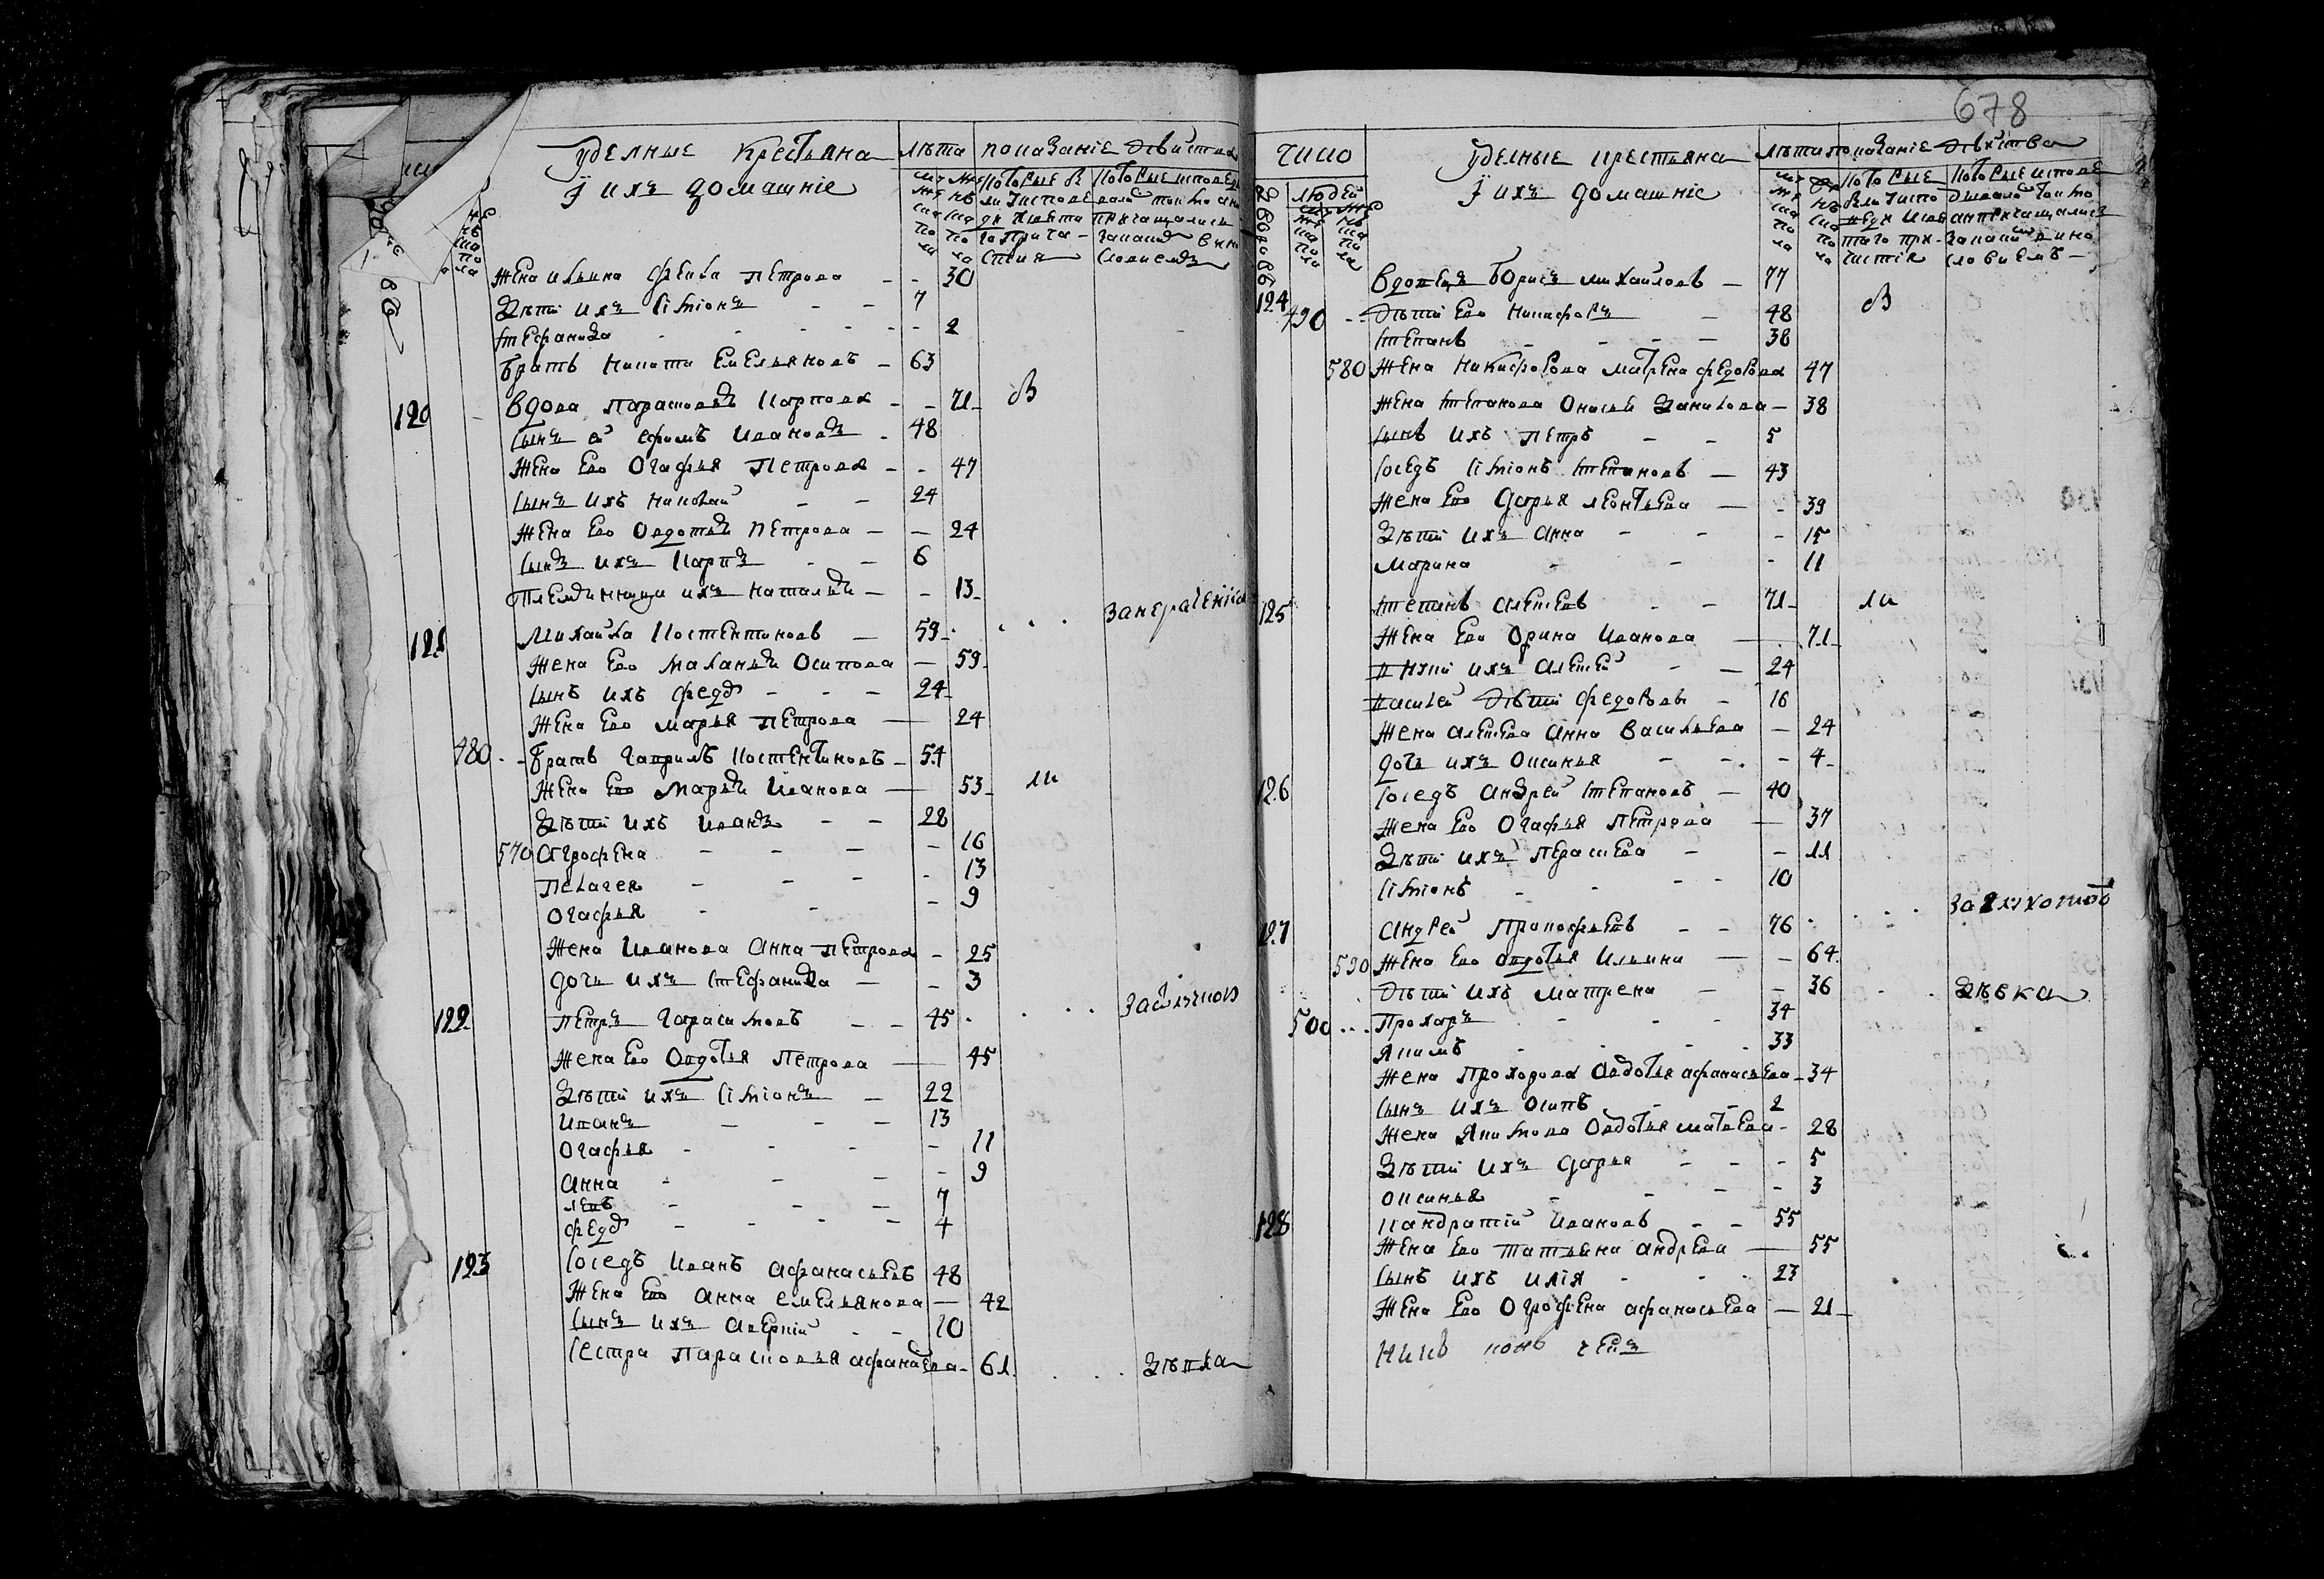 678
Уделные Крестьяна
лѣта
показание действа
Ӱ ихъ домашніе
Жена ильина Фекла Петрова - - 30
Дѣти ихъ Симіонъ - - 7
Стефанида - - - - 2
братъ Никита Емельяновъ - 63
120 - вдова Парасковья Карпова - - 71 в
Сынъ ей ефимъ Ивановъ - 48
Жена Ево Огафья Петрова - - 47
Сынъ ихъ Николай - - 24
Жена Ево Овдотья Петрова - - 24
Сынъ ихъ Карпъ - - 6
Племянница ихъ Наталья - - 13
121 Михайла Костентиновъ - 59
Жена Ево Маланья Осипова - 59
Сынъ ихъ федоръ - - - 24
Жена Ево Марья Петрова - 24
480 - братъ Гаврилъ Костентиновъ - 54
Жена Ево Марья Иванова - 53
Дѣти ихъ Иванъ - - 28
570 Огрофена - - - - 16
Пелагея - - - - 13
Огафья - - - 9
Жена Иванова Анна Петрова - 25
дочь ихъ Стефанида - - 3
122 Петръ Гарасимовъ - - 45
Жена Ево Овдотья Петрова - 45
Дѣти ихъ Симіонъ - 22
Иванъ - - - 13
Огафья - - - - 11
Анна - - - - 9
Левъ - - - 7
федоръ - - - - 4
123 Соседъ Иванъ Афанасьевъ 48
Жена Ево Анна Емельянова - 42
Сынъ ихъ Аверкій - - 10
Сестра Парасковья афанасьева - 61 . . . дѣвка
число
Уделные крестьяна
лѣта показание действа
людей
Ӱ ихъ домашніе
вдовецъ Борисъ Михайловъ - 77
124 490 - - Дѣти Ево Никифоръ - 48 в
Степанъ - - - - 38
580 Жена Никифорова Матрена федорова 47
Жена Степанова Онисья Данилова - 38
Сынъ ихъ Петръ - - 5
Соседъ Симіонъ Степановъ - 43
Жена Ево Дарья Леонтьева - - 39
Дѣти ихъ Анна - - - 15
Марина - - - 11
125 Степанъ Алексеевъ - - 71
Жена Ево Орина Иванова - 71
Внуки ихъ Алексей - - 24
Василей Дѣти федоровы - 16
Жена Алексеева Анна Васильева - 24
дочь ихъ Оксинья - - - 4
126 Соседъ Андрей Степановъ - 40
Жена Ево Огафья Петрова - 37
Дѣти ихъ Перасковья - - 11
Симіонъ - - - - 10
127 Андрей Прокофьевъ - - 76
590 Жена Ево Овдотья Ильина - - 64
Дѣти ихъ Матрена - - 36 . . дѣвка
500 . . . Прохаръ - - - 34
Якимъ - - - - 33
Жена Прохорова Овдотья афанасьева - 34
Сынъ ихъ Осипъ - - 2
Жена Якимова Овдотья матвеева - 28
Дѣти ихъ Дарья - - - 5
Оксинья - - - - 3
128 Кандратій Ивановъ - - 55
Жена Ево Татьяна Андреева - 55
Сынъ ихъ Илія - - - 23
Жена Ево Огрофена афанасьева - 21